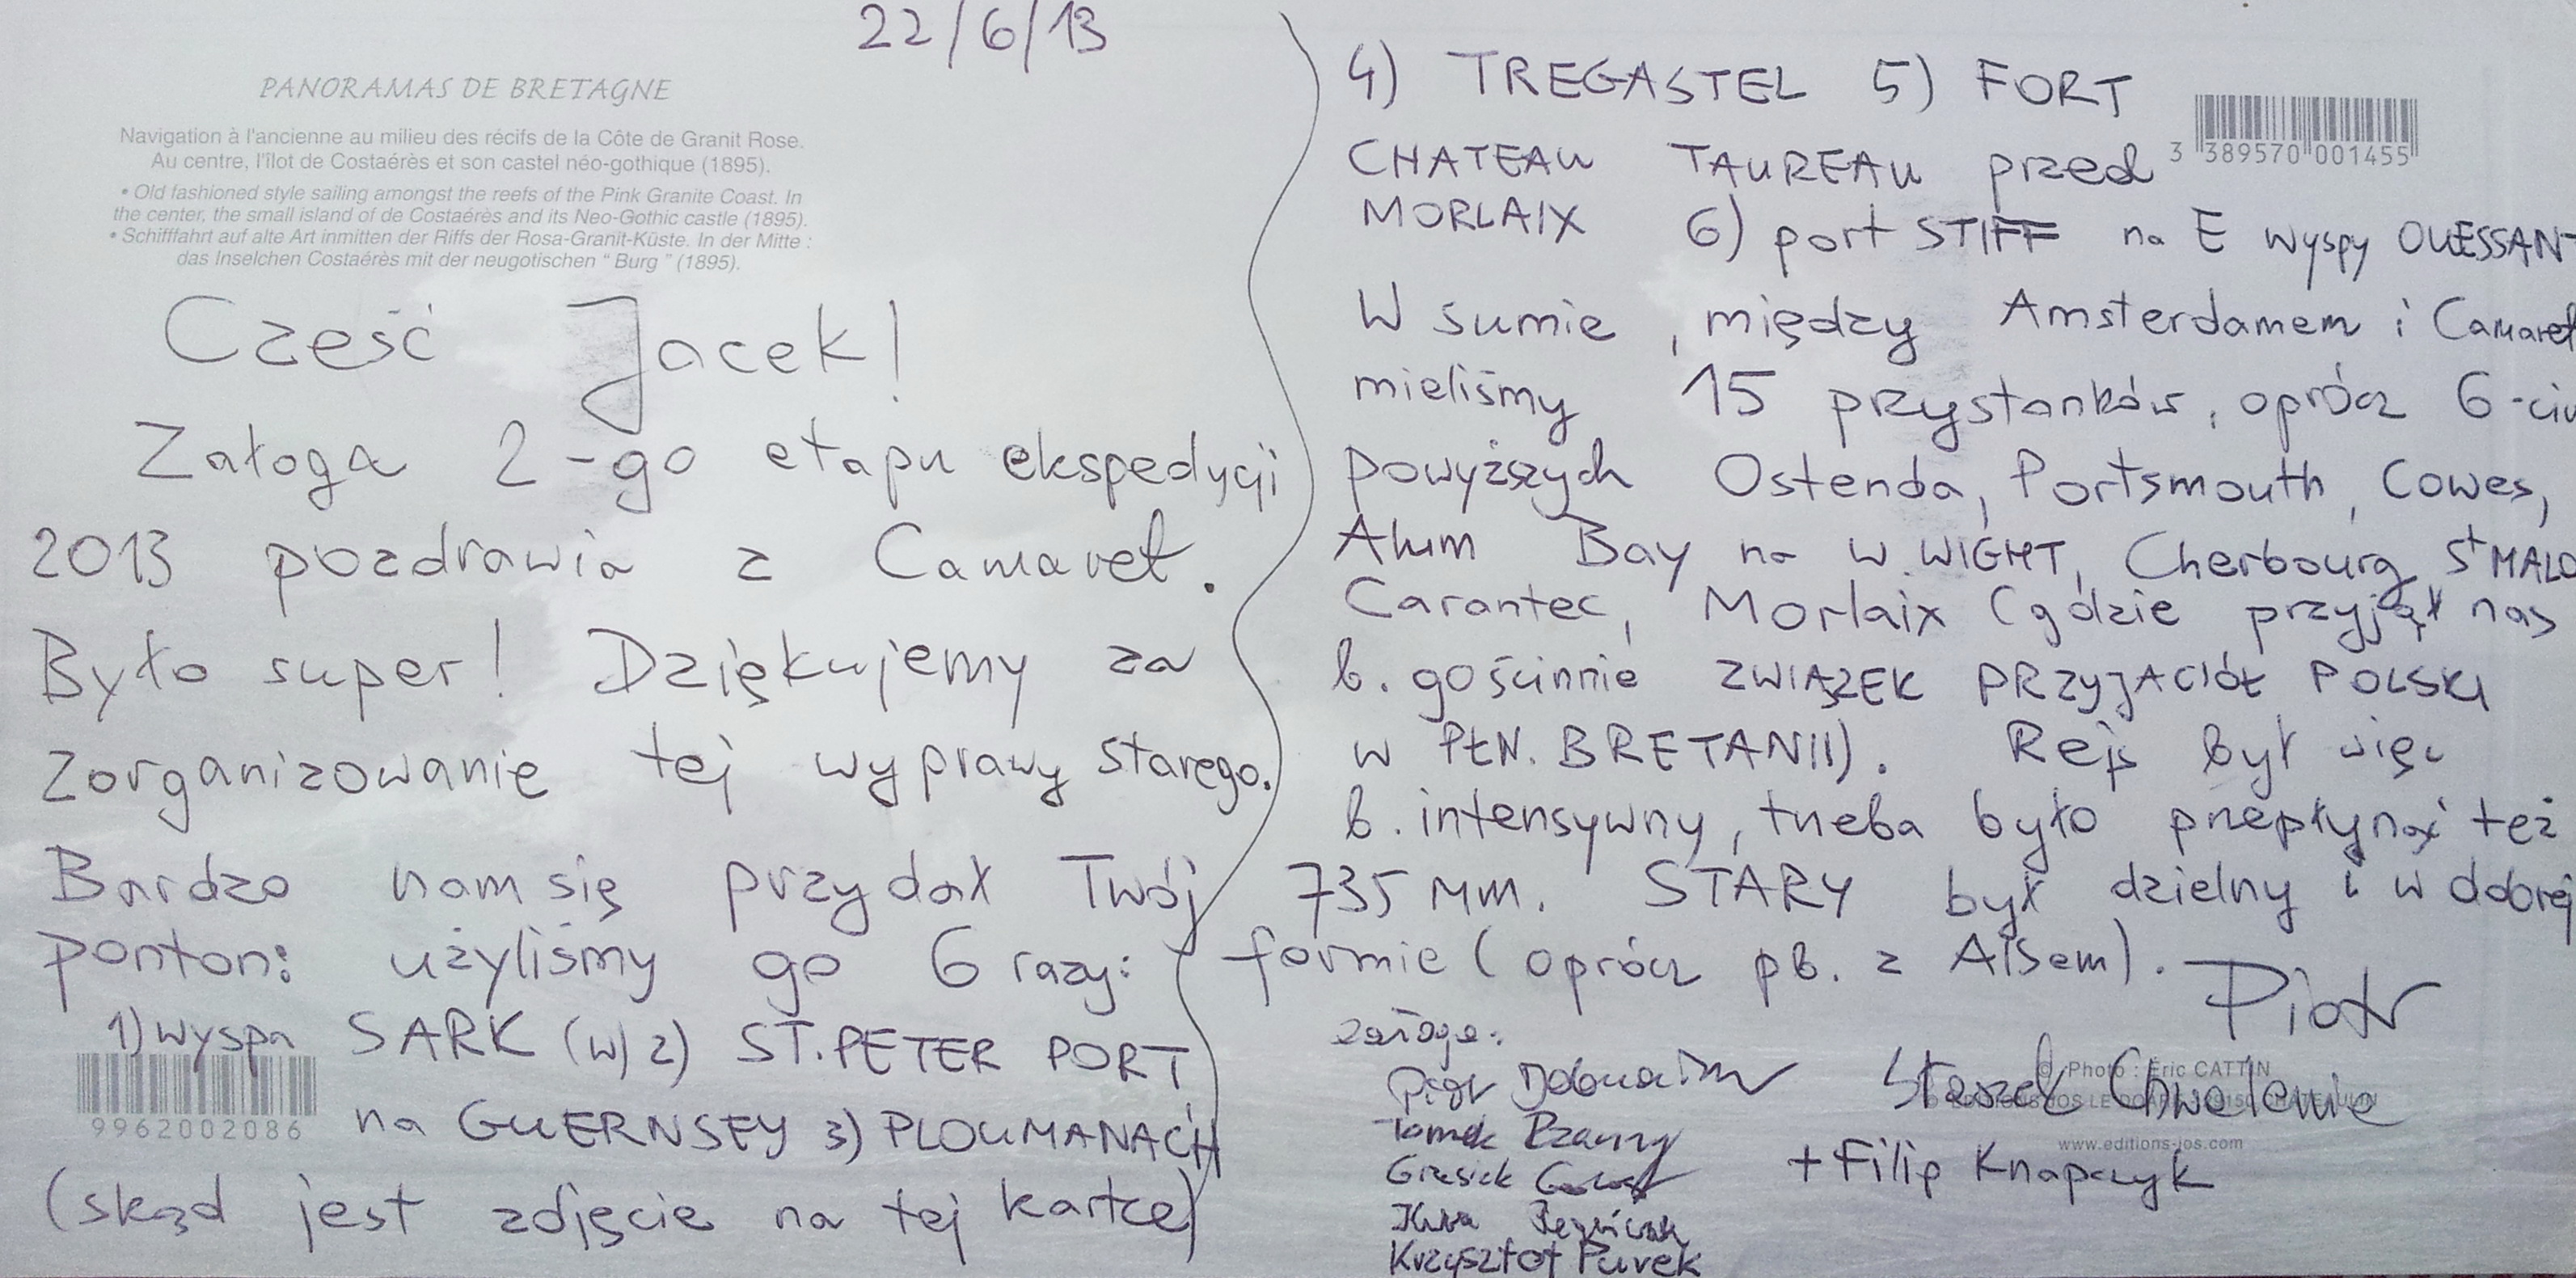 22/6/13
PANORAMAS DE BRETAGNE
Navigation à l'ancienne au milieu des récifs de la Côte de Granit Rose.
Au centre, l'îlot de Costaérès et son castel néo-gothique (1895).
• Old fashioned style sailing amongst the reefs of the Pink Granite Coast. In
the center, the small island of de Costaérès and its Neo-Gothic castle (1895).
• Schifffahrt auf alte Art inmitten der Riffs der Rosa-Granit-Küste. In der Mitte :
das Inselchen Costaérès mit der neugotischen " Burg " (1895).
Cześć Jacek!
Załoga 2-go etapu ekspedycji
2013 pozdrawia z Camaret.
Było super! Dziękujemy za
zorganizowanie tej wyprawy starego.
Bardzo nam się przydał Twój
ponton: użyliśmy go 6 razy:
1) wyspa SARK (W) 2) ST. PETER PORT
9962002086
na GUERNSEY 3) PLOUMANACH
(skąd jest zdjęcie na tej kartce)
4) TREGASTEL 5) FORT
CHATEAU TAUREAU przed
3 389570 001455
MORLAIX 6) port STIFF na E wyspy OUESSANT
W sumie, między Amsterdamem i Camaret
mieliśmy 15 przystanków, oprócz 6-ciu
powyższych Ostenda, Portsmouth, Cowes,
Alum Bay na W. WIGHT, Cherbourg, St MALO
Carantec, Morlaix (gdzie przyjął nas
b. gościnnie ZWIĄZEK PRZYJACIÓŁ POLSKI
w PŁN. BRETANII). Rejs był więc
b. intensywny, trzeba było przepłynąć też
735 MM. STARY był dzielny i w dobrej
formie (oprócz pb. z AISem).
Piotr
załoga:
Piotr
Staszek
Tomek
Gresiek
Kuba
Krzysztof Purek
+ Filip Knapczyk
© Photo : Éric CATTIN
© EDITIONS JOS LE DOARÉ 29150 CHATEAULIN
www.editions-jos.com